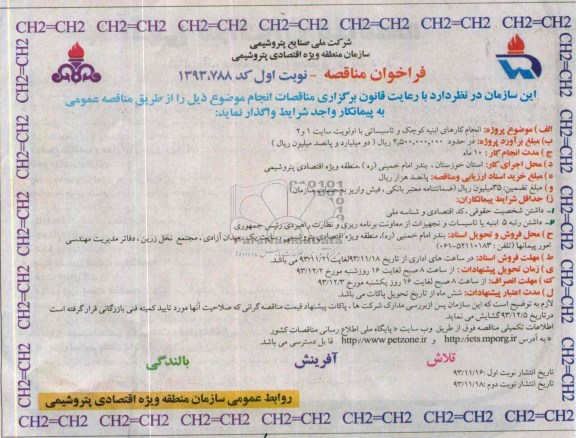 CH2=CH2 CH2=CH2 CH2=CH2 CH2=CH2 CH2=CH2 CH2=CH2
شرکت ملی صنایع پتروشیمی
سازمان منطقه ویژه اقتصادی پتروشیمی
فراخوان مناقصه - نوبت اول کد ۱۳۹۳.۷۸۸
این سازمان در نظر دارد با رعایت قانون برگزاری مناقصات انجام موضوع ذیل را از طریق مناقصه عمومی
به پیمانکار واجد شرایط واگذار نماید:
الف) موضوع پروژه: انجام کارهای ابنیه کوچک و تاسیساتی با اولویت سایت ۱ و ۲
ب) مبلغ برآورد پروژه: در حدود ۲,۵۰۰,۰۰۰,۰۰۰ ریال ( دو میلیارد و پانصد میلیون ریال )
ج) مدت انجام کار: ۱۰ ماه
د) محل اجرای کار: استان خوزستان ، بندر امام خمینی (ره) ، منطقه ویژه اقتصادی پتروشیمی
ه) مبلغ خرید اسناد ارزیابی و مناقصه: پانصد هزار ریال
و) مبلغ تضمین: ۳۵ میلیون ریال (ضمانتنامه معتبر بانکی ، فیش واریز به حساب سازمان)
ز) حداقل شرایط پیمانکاران:
۱- داشتن شخصیت حقوقی ، کد اقتصادی و شناسه ملی
۲- داشتن رتبه ۵ ابنیه یا تاسیسات و تجهیزات از معاونت برنامه ریزی و نظارت راهبردی رئیس جمهوری
ح) محل فروش و تحویل اسناد: بندر امام خمینی (ره)، منطقه ویژه اقتصادی پتروشیمی، سایت یک، میدان آزادی ، مجتمع نخل زرین ، دفاتر مدیریت مهندسی
امور پیمانها (تلفن: ۵۲۱۱۰۱۸۳-۰۶۱)
ط) مهلت فروش اسناد: در ساعت های اداری از تاریخ ۹۳/۱۱/۱۸ لغایت ۹۳/۱۱/۲۱ می باشد.
ی) زمان تحویل پیشنهادات : از ساعت ۸ صبح لغایت ۱۶ روز شنبه مورخ ۹۳/۱۲/۲
ک) مهلت انصراف: از ساعت ۸ صبح لغایت ۱۶ روز یکشنبه مورخ ۹۳/۱۲/۳
ل) مدت اعتبار پیشنهادات: شش ماه از تاریخ تحویل پاکات می باشد.
لازم به توضیح است که این سازمان پس از بررسی مدارک شرکت ها ، پاکات پیشنهاد قیمت مناقصه گرانی که صلاحیت آنها مورد تایید کمیته فنی بازرگانی قرار گرفته است
در تاریخ ۹۳/۱۲/۵ گشایش می نماید
اطلاعات تکمیلی مناقصه فوق از طریق وب سایت « پایگاه ملی اطلاع رسانی مناقصات کشور
» به آدرس http://iets.mporg.ir و http://www.petzone.ir قابل دسترسی می باشد.
تلاش آفرینش بالندگی
تاریخ انتشار نوبت اول: ۹۳/۱۱/۱۶
تاریخ انتشار نوبت دوم: ۹۳/۱۱/۱۸
روابط عمومی سازمان منطقه ویژه اقتصادی پتروشیمی
CH2=CH2 CH2=CH2 CH2=CH2 CH2=CH2 CH2=CH2 CH2=CH2